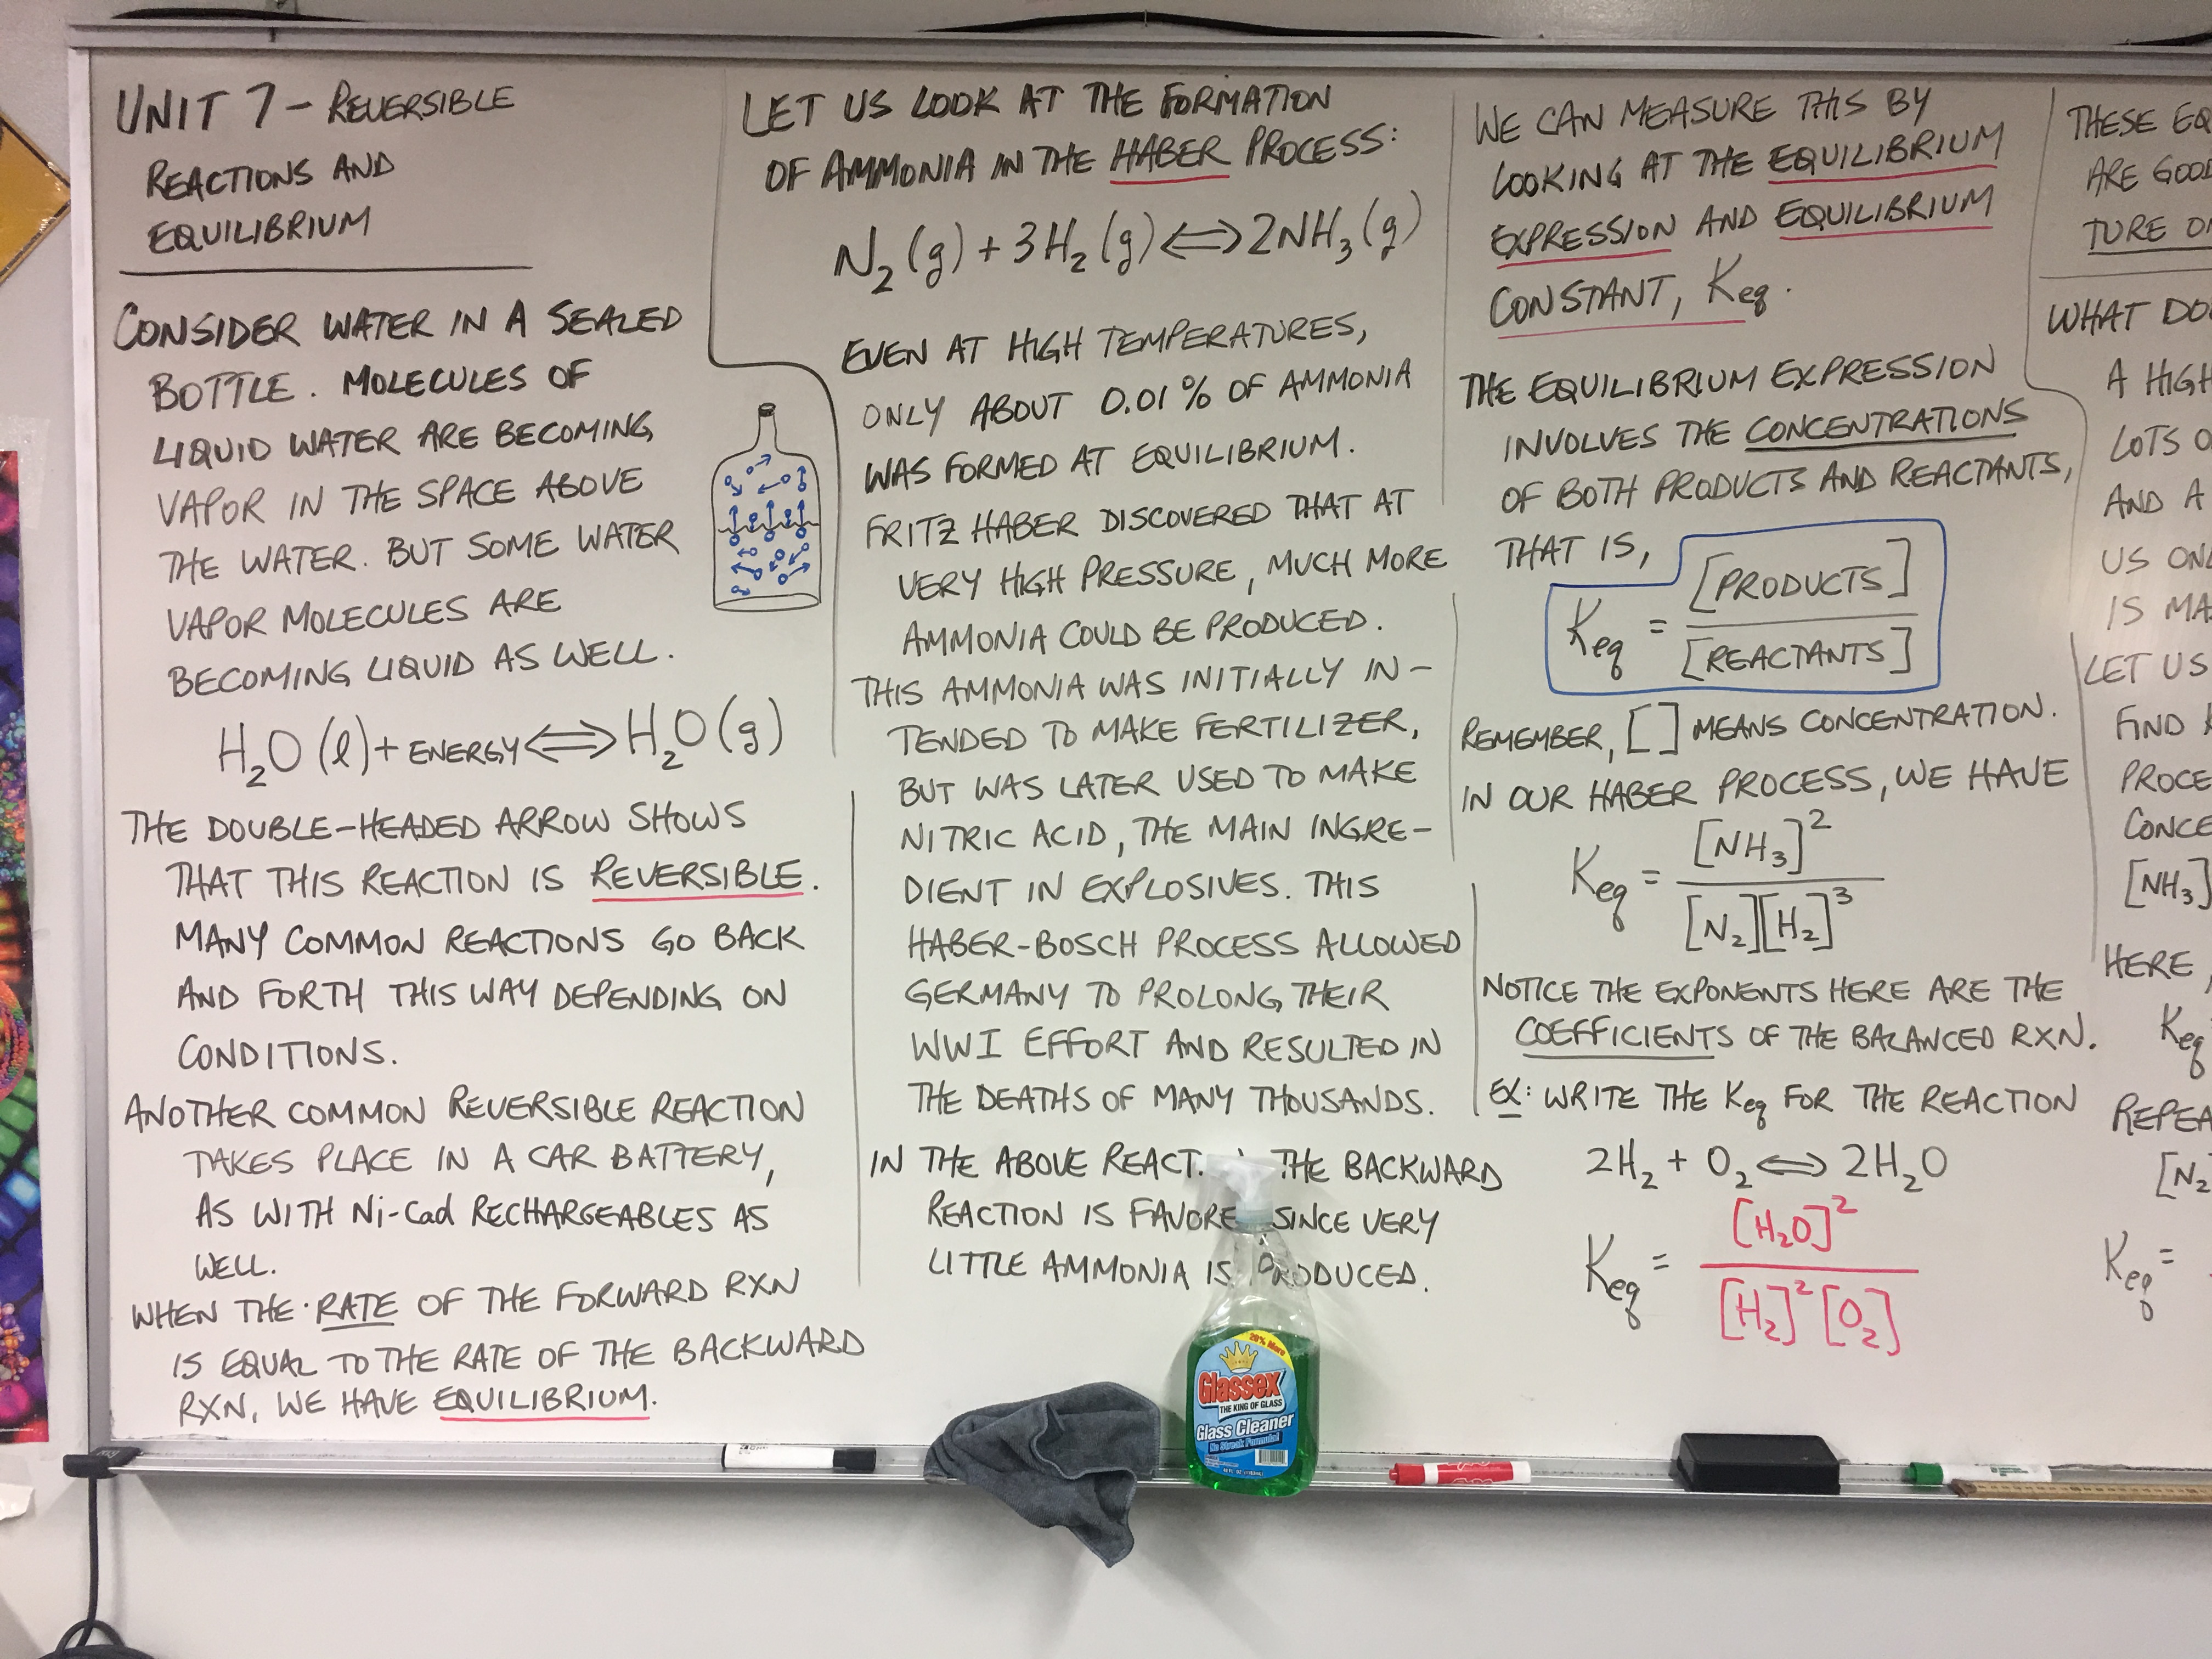 UNIT 7 – REVERSIBLE
REACTIONS AND
EQUILIBRIUM
CONSIDER WATER IN A SEALED
BOTTLE. MOLECULES OF
LIQUID WATER ARE BECOMING
VAPOR IN THE SPACE ABOVE
THE WATER. BUT SOME WATER
VAPOR MOLECULES ARE
BECOMING LIQUID AS WELL.
H₂O (l) + ENERGY ⟺ H₂O (g)
THE DOUBLE-HEADED ARROW SHOWS
THAT THIS REACTION IS REVERSIBLE.
MANY COMMON REACTIONS GO BACK
AND FORTH THIS WAY DEPENDING ON
CONDITIONS.
ANOTHER COMMON REVERSIBLE REACTION
TAKES PLACE IN A CAR BATTERY,
AS WITH Ni-Cad RECHARGEABLES AS
WELL.
WHEN THE RATE OF THE FORWARD RXN
IS EQUAL TO THE RATE OF THE BACKWARD
RXN, WE HAVE EQUILIBRIUM.
LET US LOOK AT THE FORMATION
OF AMMONIA IN THE HABER PROCESS:
N₂ (g) + 3H₂ (g) ⟺ 2NH₃ (g)
EVEN AT HIGH TEMPERATURES,
ONLY ABOUT 0.01% OF AMMONIA
WAS FORMED AT EQUILIBRIUM.
FRITZ HABER DISCOVERED THAT AT
VERY HIGH PRESSURE, MUCH MORE
AMMONIA COULD BE PRODUCED.
THIS AMMONIA WAS INITIALLY IN-
TENDED TO MAKE FERTILIZER,
BUT WAS LATER USED TO MAKE
NITRIC ACID, THE MAIN INGRE-
DIENT IN EXPLOSIVES. THIS
HABER-BOSCH PROCESS ALLOWED
GERMANY TO PROLONG THEIR
WWI EFFORT AND RESULTED IN
THE DEATHS OF MANY THOUSANDS.
IN THE ABOVE REACT. THE BACKWARD
REACTION IS FAVORE SINCE VERY
LITTLE AMMONIA IS PRODUCED.
WE CAN MEASURE THIS BY
LOOKING AT THE EQUILIBRIUM
EXPRESSION AND EQUILIBRIUM
CONSTANT, Keq.
THE EQUILIBRIUM EXPRESSION
INVOLVES THE CONCENTRATIONS
OF BOTH PRODUCTS AND REACTANTS,
THAT IS,
Keq = [PRODUCTS] / [REACTANTS]
REMEMBER, [ ] MEANS CONCENTRATION.
IN OUR HABER PROCESS, WE HAVE
Keq = [NH₃]² / [N₂][H₂]³
NOTICE THE EXPONENTS HERE ARE THE
COEFFICIENTS OF THE BALANCED RXN.
EX: WRITE THE Keq FOR THE REACTION
2H₂ + O₂ ⟺ 2H₂O
Keq = [H₂O]² / [H₂]² [O₂]
THESE EQ
ARE GOOD
TURE O
WHAT DO
A HIGH
LOTS O
AND A
US ON
IS MA
LET US
FIND
PROCE
CONCE
[NH₃]
HERE,
Keq
REPEA
[N₂
Keq =
20% More
Glassex
THE KING OF GLASS
Glass Cleaner
No Streak Formula!